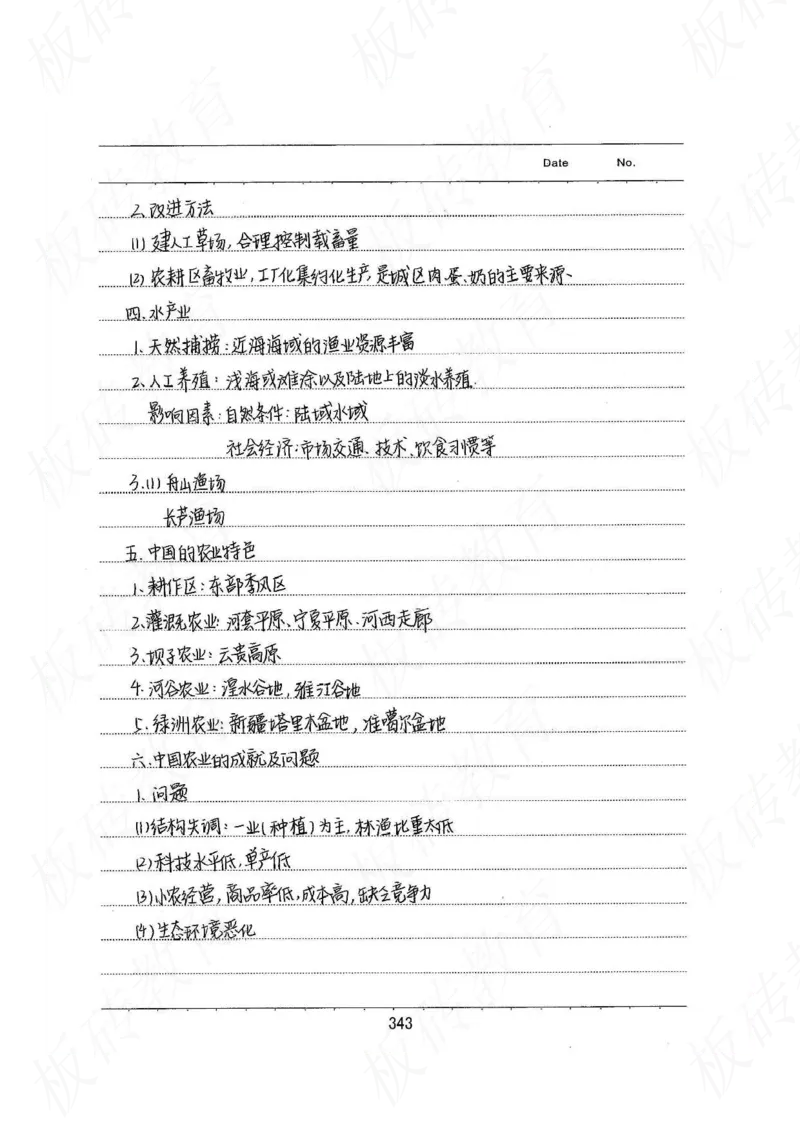 Date No.
2.改进方法
(1)建人工草场,合理控制载畜量
(2)农耕区畜牧业,工厂化集约化生产,是城区肉、蛋、奶的主要来源、
四.水产业
1.天然捕捞:近海海域的渔业资源丰富
2、人工养殖:浅海或滩涂以及陆地上的淡水养殖.
影响因素:自然条件:陆域水域
社会经济:市场交通、技术、饮食习惯等
3.(1)舟山渔场
长芦渔场
五.中国的农业特色
1、耕作区:东部季风区
2、灌溉农业:河套平原、宁夏平原、河西走廊
3、坝子农业:云贵高原
4.河谷农业:湟水谷地,雅江谷地
5、绿洲农业:新疆塔里木盆地,准噶尔盆地
六、中国农业的成就及问题
1、问题
(1)结构失调:一业(种植)为主,林渔比重太低
(2)科技水平低,单产低
(3)小农经营,商品率低,成本高,缺乏竞争力
(4)生态环境恶化
343
板砖教育